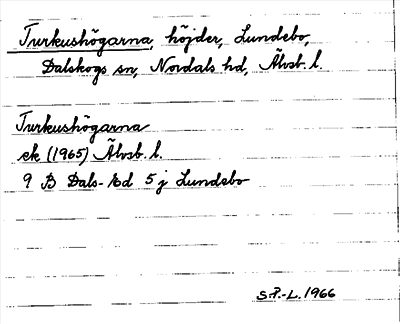 Turkushögarna, höjder, Lundebo,
Dalskogs sn, Nordals hd, Älvsb. l.
Turkushögarna
ek (1965) Älvsb. l.
9 B Dals-Ed 5 j Lundebo
S.P.-L. 1966